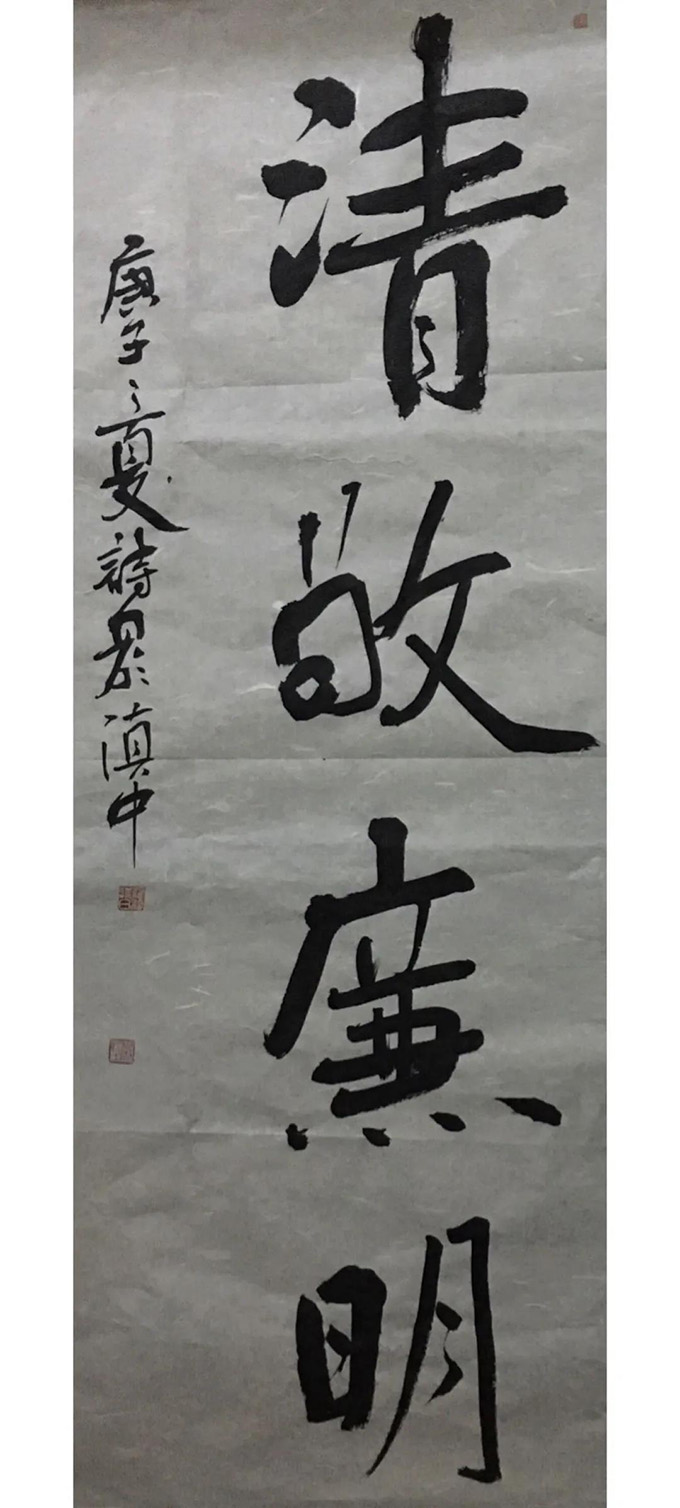 清敬廉明
庚子之夏詩眾於滇中